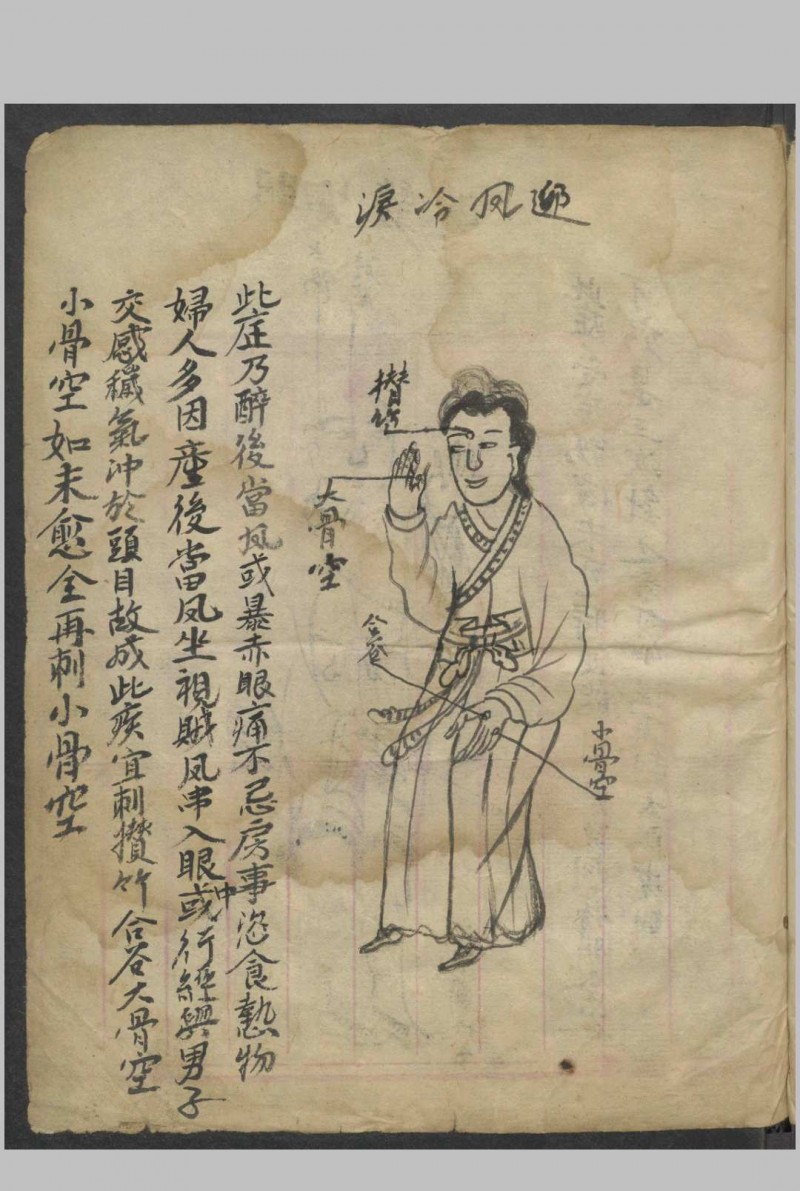 迎风冷淚
攢竹
大骨空
合谷
小骨空
此症乃醉後當风或暴赤眼痛不忌房事恣食熱物
婦人多因產後當风坐視賊风串入眼中或行經與男子
交感穢氣沖於頭目故成此疾宜刺攢竹合谷大骨空
小骨空如未愈全再刺小骨空